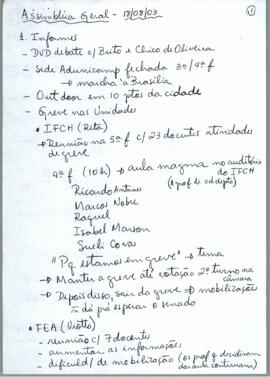 Assembléia Geral - 18/08/03
1
1. Informes
- DVD debate c/ Brito e Chico de Oliveira
- Sede Adunicamp fechada 3ª/4ª f
→ marcha à Brasília
- Out door em 10 ptos da cidade
- Greve nas Unidades
• IFCH (Rita)
→ Reunião na 5ª f c/ 23 docentes atividades
de greve
4ª f (10h) → aula magma no auditório
do IFCH
(1 prof. de cd depto)
Ricardo Antunes
Marcos Nobre
Raquel
Isabel Marson
Sueli
"Pq estamos em greve" → tema
→ Manter a greve até votação 2º turno na
câmara
→ Depois disso, sair da greve → mobilização
ñ dá prá esperar o senado
• FEA (Viotto)
- reunião c/ 7 docente
- aumentar as informações
- dificuld/ de mobilização (os prof q decidiram
dar aula continuam)